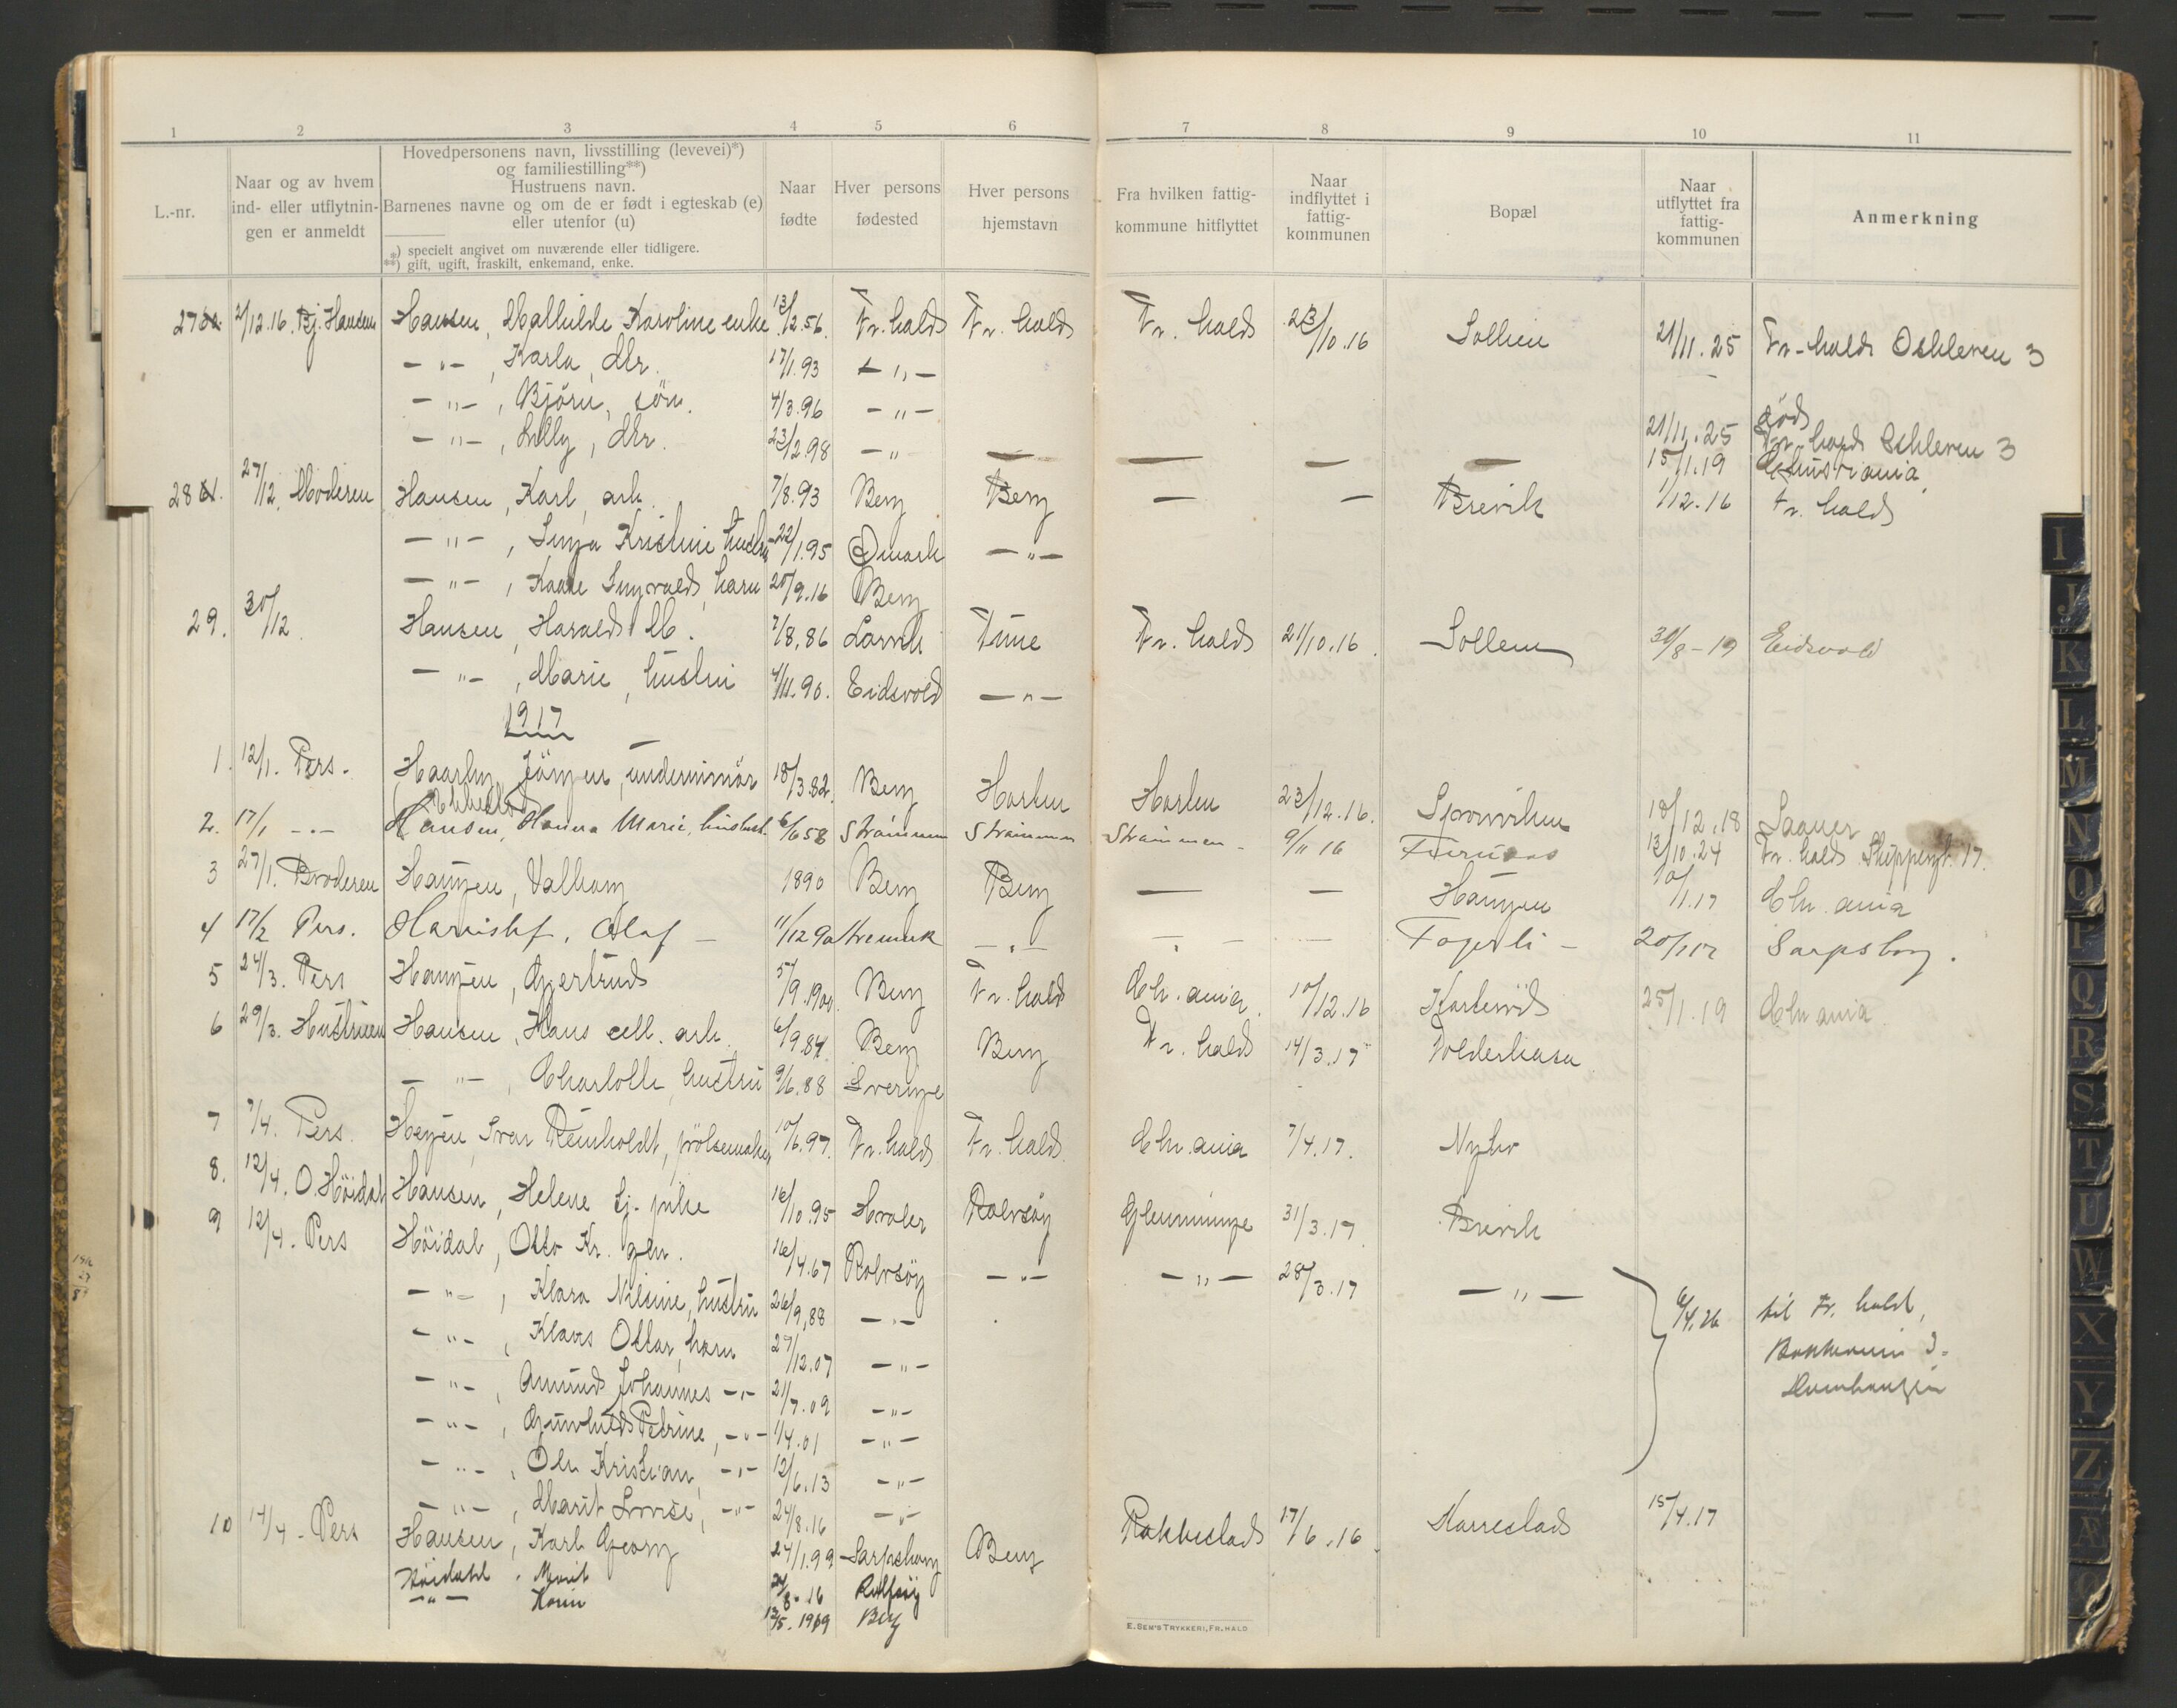 1 2 3 4 5 6 7 8 9 10 11
L.-nr.
Naar og av hvem
ind- eller utflytnin-
gen er anmeldt
Hovedpersonens navn, livsstilling (levevei)*)
og familiestilling**)
Hustruens navn.
Barnenes navne og om de er født i egteskab (e)
eller utenfor (u)
*) specielt angivet om nuværende eller tidligere.
**) gift, ugift, fraskilt, enkemand, enke.
Naar
fødte
Hver persons
fødested
Hver persons
hjemstavn
Fra hvilken fattig-
kommune hitflyttet
Naar
indflyttet i
fattig-
kommunen
Bopæl
Naar
utflyttet fra
fattig-
kommunen
Anmerkning
27 2/12.16. Bj. Hansen Hansen, Mathilde Karoline enke 13/2.56. Fr.hald Fr. hald Fr. hald 23/10.16 Sollien 21/11.25 Fr-hald Oskleven 3
-"-, Karla, dtr. 17/1.93 -"-
-"-, Björn, sön. 4/3.96 -"- död
-"-, Lilly, dtr. 23/2.98 -"- 21/11.25 Fr-hald Oskleven 3
15/1.19 Christiania
28 27/12. Moderen Hansen, Karl, arb. 7/8.93 Berg Berg — — Brevik 1/12.16 Fr. hald
-"-, Inga Kristine hustru 22/1.95 Ømark -"-
-"-, Kaare Ingvald, barn 20/9.16 Berg
29. 30/12. Hansen, Harald M. 7/8.86 Larvik Tune Fr. hald 21/10.16. Sollien 30/8-19 Eidsvold
-"-, Marie, hustru 4/11.90. Eidsvold -"-
1917
1. 12/1. Pers. Haarby, Jörgen, underminör 18/3.82. Berg Horten Horten 23/12.16. Sponviken 18/12.18 Saaner
2. 17/1 -"- Hansen, Hanna Marie, husbest. 6/6 58 Strömmen Strömmen Strömmen - 9/11 16 Furunes 13/10.24 Fr. hald Skippergt. 17.
3 27/1. Broderen Haugen, Valborg 1890 Berg Berg — — Haugen 10/1.17 Chr.ania
4 17/2 Pers. Olaf - 11/12 90 Aremark -"- -"- — Fagerli - 20/1 17 Sarpsborg.
5 24/3. Pers Haugen, Gjertrud 5/9.1900. Berg Fr. hald Chr.ania. 10/12.16 25/1.19 Chr.ania
6 29/3. Hustruen Hansen, Hans cell. arb. 6/9.84. Berg Berg Fr. hald 14/3.17 Folderhasa
-"-, Charlotte, hustru 9/6.88 Sverige
7 7/4. Pers. Ivar Reinholdt, pölsemaker 10/6.97. Fr. hald Fr. hald Chr.ania 7/4.17. Nybo
8. 12/4. O. Höidal Hansen, Helene tj. pike 16/10.95 Hvaler Rolvsöy Glemminge 31/3.17. Brevik
9 12/4. Pers Höidal, Otto Kr. 16/4.67 Rolvsöy -"- -"- 28/3.17 -"-
-"-, Klara Nilsine, hustru 26/9.88 -"- 6/4.26 til Fr. hald,
-"-, Klaus Ottar, barn 27/12.07 -"-
-"-, Amund Johannes -"- 21/7.09 -"-
-"-, Gunhild Petrine, -"- 1/4.01 -"-
-"-, Ole Kristian, -"- 12/6.13 -"-
-"-, Marit Lovise, -"- 24/8.16 -"-
10 14/4 - Pers Hansen, Karl Georg 24/1.99 Sarpsborg Berg Rakkestad 17/6.16. Karrestad 15/4.17
Höidahl, Marit 24/8-16 Rolfsöy
-"- Karin 12/5. 1919 Berg
E. SEM'S TRYKKERI, FR.HALD
I
J
K
L
M
N
O
P
Q
R
S
T
U
W
X
Y
Z
Æ